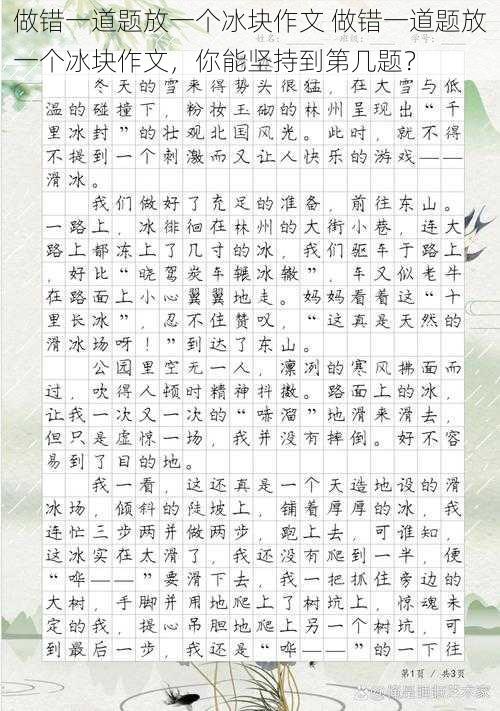 做错一道题放一个冰块作文 做错一道题放
一个冰块作文，你能坚持到第几题？
冬天的雪来得势头很猛，在大雪与低
温的碰撞下，粉妆玉砌的林州呈现出“千
里冰封”的壮观北国风光。此时，就不得
不提到一个刺激而又让人快乐的游戏——
滑冰。
我们做好了充足的准备，前往东山。
一路上，冰徘徊在林州的大街小巷，连大
路上都冻上了几寸的冰，我们驱车于路上
，好比“晓驾炭车辗冰辙”，车又似老牛
在路面上小心翼翼地走。妈妈看着这“十
里长冰”，忍不住赞叹，“这真是天然的
滑冰场呀！”到达了东山。
公园里空无一人，凛冽的寒风拂面而
过，吹得人顿时精神抖擞。路面上的冰，
让我一次又一次的“哧溜”地滑来滑去，
但只是虚惊一场，我并没有摔倒。好不容
易到了目的地。
我一看，这还真是一个天造地设的滑
冰场，倾斜的陡坡上，铺着厚厚的冰，我
连忙三步两并做两步，跑上去，可谁知，
这冰实在太滑了，我还没有爬到一半，便
“哗——”要滑下去，我一把抓住旁边的
大树，手脚并用地爬上了树坑上，惊魂未
定的我，提心吊胆地爬上另一个树坑，可
到最后一步，我还是“哗——”的一下往
第1页 / 共3页